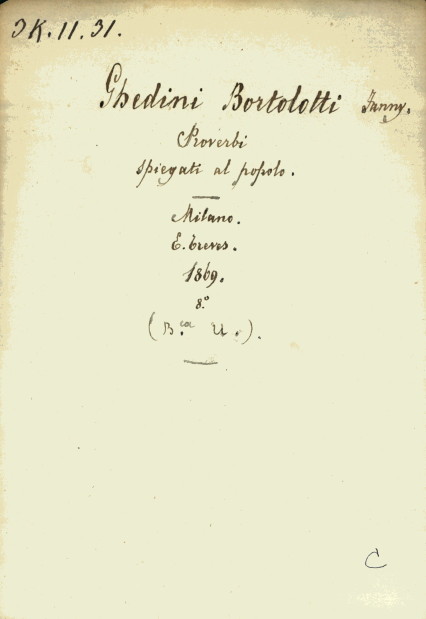 JK.11.31.
Ghedini Bortolotti Fanny.
Proverbi
spiegati al popolo.
Milano.
E. Treves.
1869.
8.º
(B.ca U.).
C